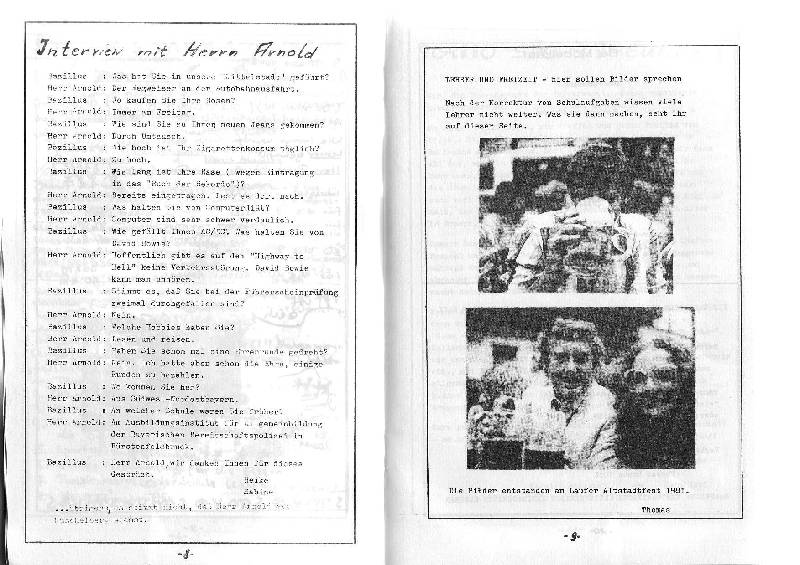 Interview mit Herrn Arnold
Bazillus : Was hat Sie in unsere geführt?
Herr Arnold: Der Wegweiser an der Autobahnausfahrt.
Bazillus : Wo kaufen Sie Ihre Hosen?
Herr Arnold: Immer am Freitag.
Bazillus : Wie sind Sie zu Ihren neuen Jeans gekommen?
Herr Arnold: Durch Umtausch.
Bazillus : Wie hoch ist Ihr Zigarettenkonsum täglich?
Herr Arnold: Zu hoch.
Bazillus : Wie lang ist Ihre Nase ( wegen Eintragung
in das "Buch der Rekorde")?
Herr Arnold: Bereits eingetragen. nach.
Bazillus : Was halten Sie von
Herr Arnold: Computer sind sehr schwer verdaulich.
Bazillus : Wie gefällt Ihnen AC/DC? Was halten Sie von
David Bowie?
Herr Arnold: Hoffentlich gibt es auf dem "Highway to
Hell" keine David Bowie
kann man anhören.
Bazillus : Stimmt es, daß Sie bei der Führerscheinprüfung
zweimal durchgefallen sind?
Herr Arnold: Nein.
Bazillus : Welche Hobbies haben Sie?
Herr Arnold: Lesen und reisen.
Bazillus : Haben Sie schon mal eine Ehrenrunde gedreht?
Herr Arnold: Nein. Ich hatte aber schon die Ehre, einige
Runden zu bezahlen.
Bazillus : Wo kommen Sie her?
Herr Arnold: Aus
Bazillus : An welcher Schule waren Sie früher?
Herr Arnold: Am Ausbildungsinstitut für
der Bayrischen Bereitschaftspolizei in
Fürstenfeldbruck.
Bazillus : Herr Arnold, wir danken Ihnen für dieses
Gespräch.
Heike
Sabine
nicht, Herr Arnold
-8-
LEHRER UND FREIZEIT - hier sollen Bilder sprechen
Nach der Korrektur von Schulaufgaben wissen viele
Lehrer nicht weiter. Was sie dann machen, seht ihr
auf dieser Seite.
Die Bilder entstanden am Laufer Altstadtfest 1981.
Thomas
-9-